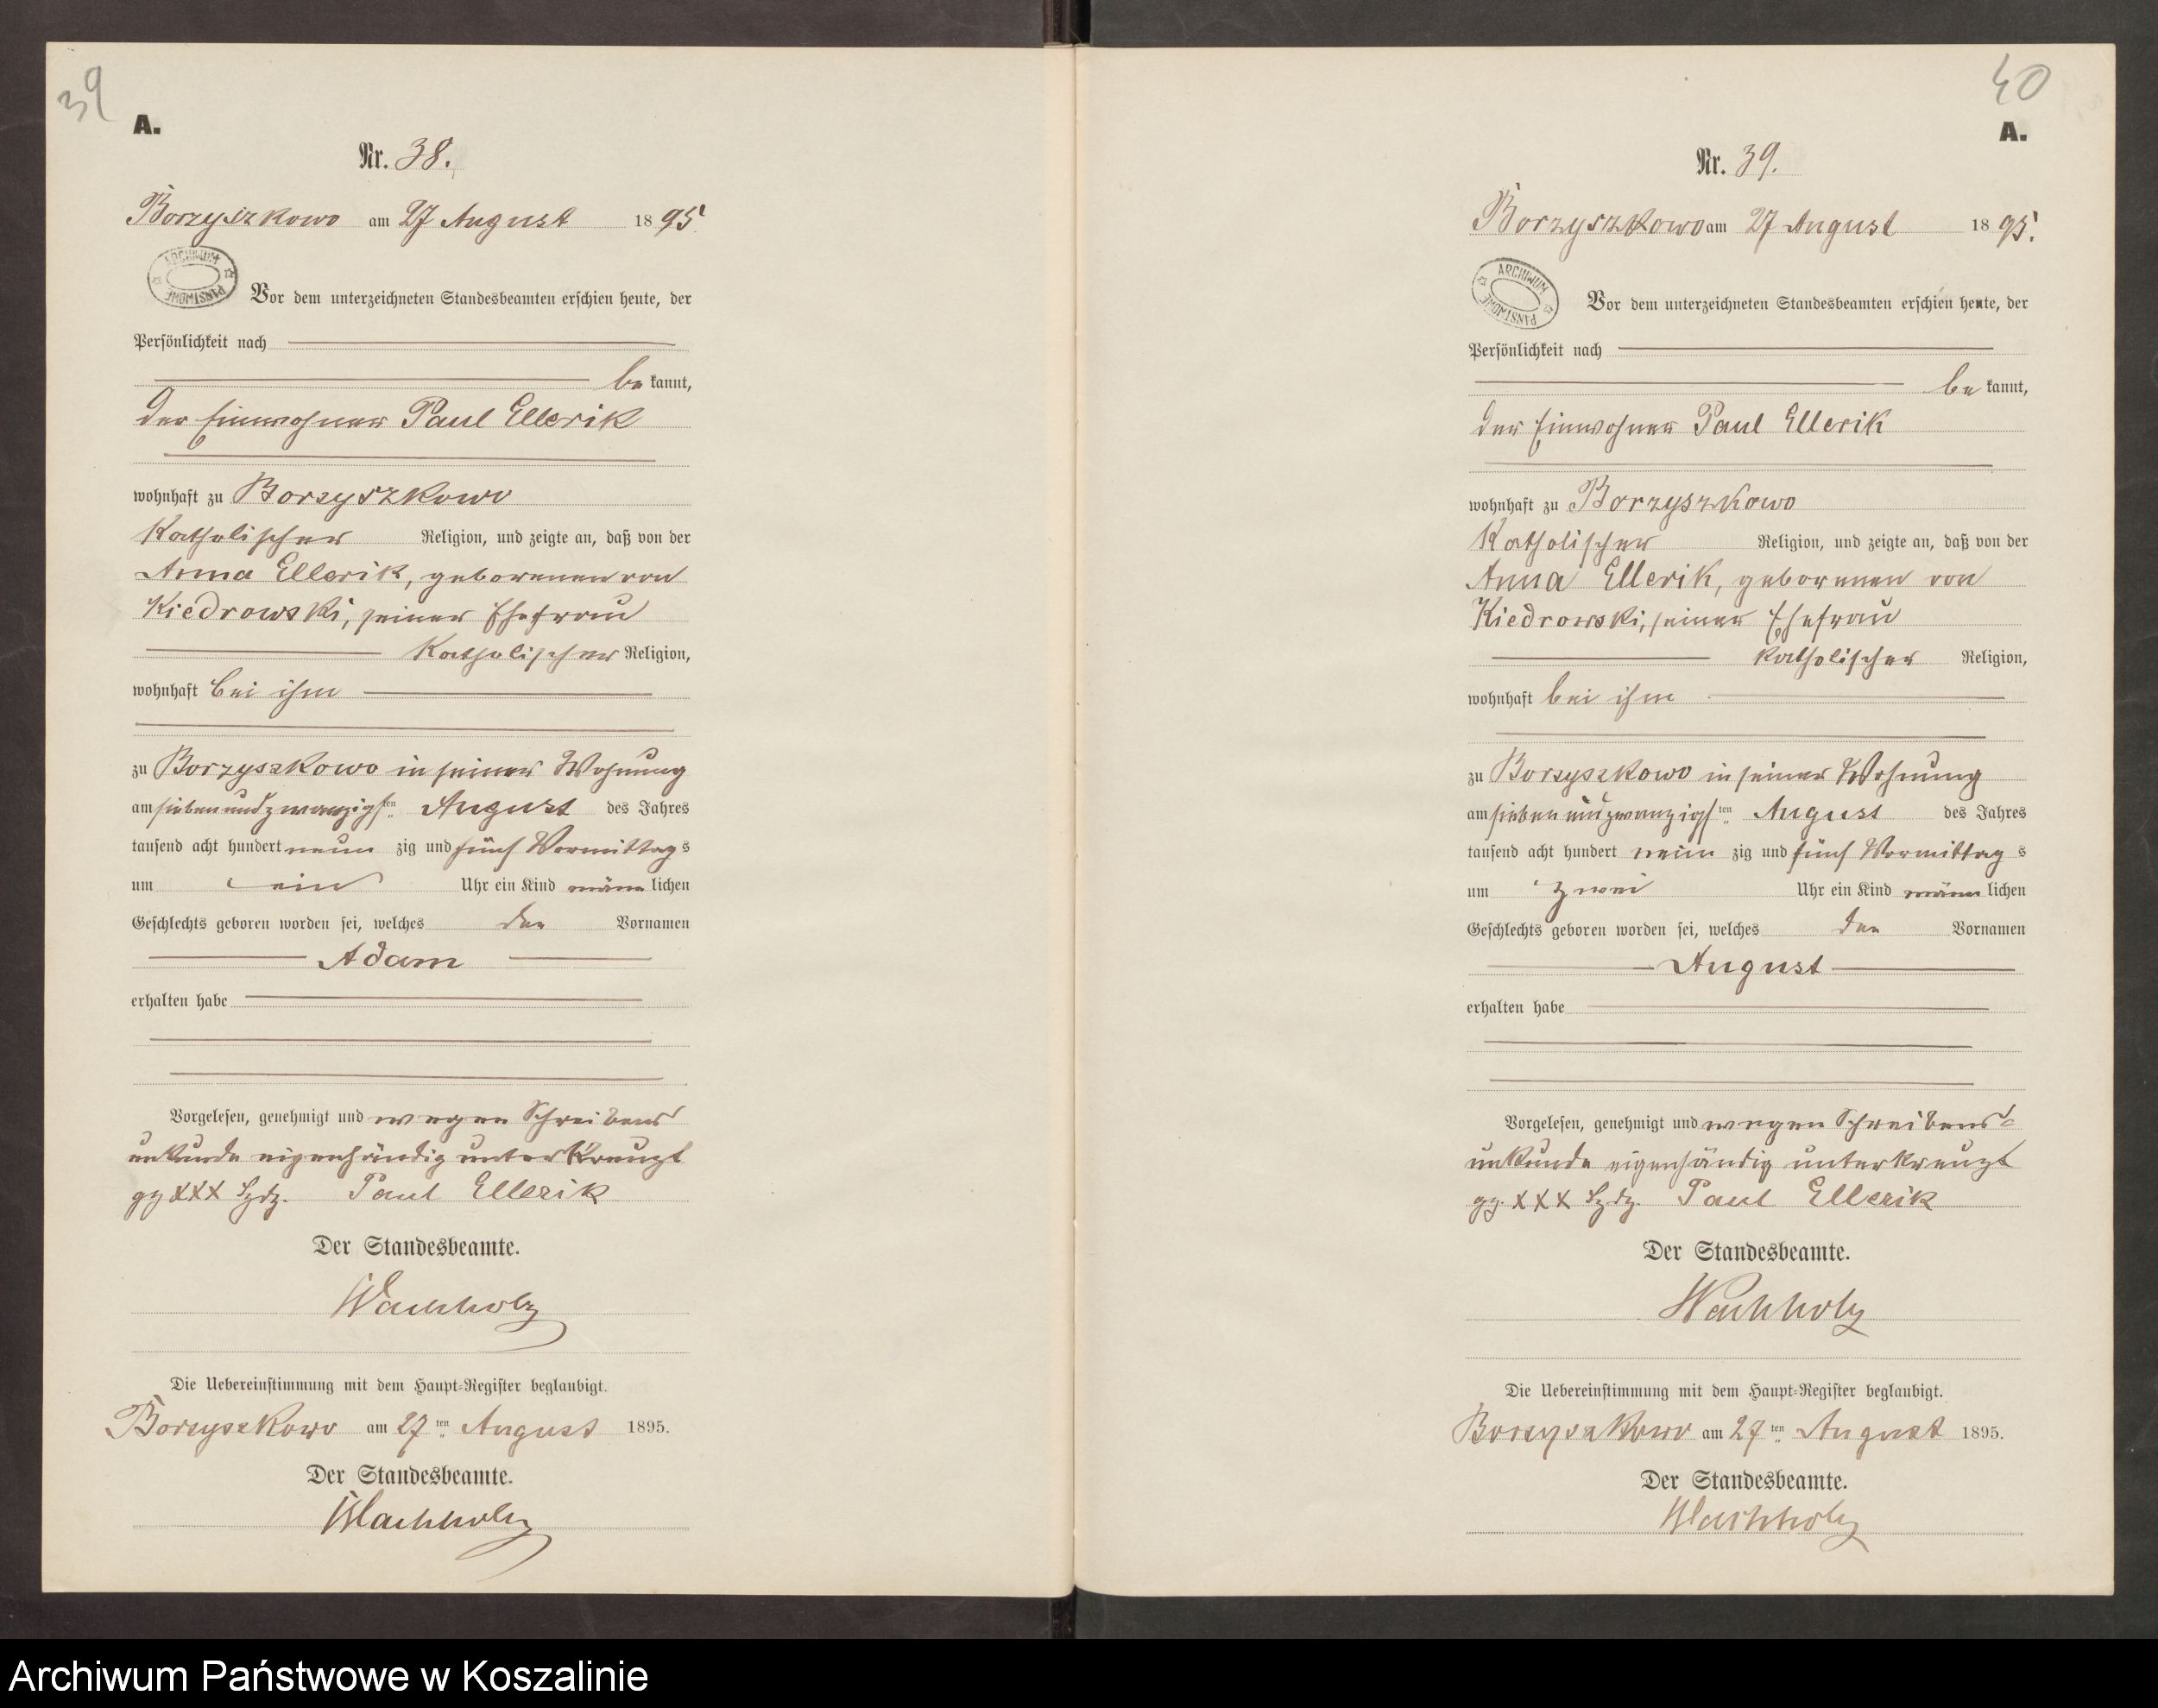 39
A.
Nr. 38.
Borzyszkowo am 27 August 1895.
ARCHIWUM PAŃSTWOWE
Vor dem unterzeichneten Standesbeamten erschien heute, der
Persönlichkeit nach
bekannt,
der Einwohner Paul Ellerik
wohnhaft zu Borzyszkowo
Katholischer Religion, und zeigte an, daß von der
Anna Ellerik, geborenen von
Kiedrowski, seiner Ehefrau
Katholischer Religion,
wohnhaft bei ihm
zu Borzyszkowo in seiner Wohnung
am siebenundzwanzigsten August des Jahres
tausend acht hundert neunzig und fünf Vormittags
um ein Uhr ein Kind männlichen
Geschlechts geboren worden sei, welches den Vornamen
Adam
erhalten habe
Vorgelesen, genehmigt und wegen Schreibens
unkunde eigenhändig unterkreuzt
gz XXX Hzdz. Paul Ellerik
Der Standesbeamte.
Wachholz
Die Uebereinstimmung mit dem Haupt-Register beglaubigt.
Borzyszkowo am 27ten August 1895.
Der Standesbeamte.
Wachholz
40
A.
Nr. 39.
Borzyszkowo am 27 August 1895.
ARCHIWUM PAŃSTWOWE
Vor dem unterzeichneten Standesbeamten erschien heute, der
Persönlichkeit nach
bekannt,
der Einwohner Paul Ellerik
wohnhaft zu Borzyszkowo
Katholischer Religion, und zeigte an, daß von der
Anna Ellerik, geborenen von
Kiedrowski, seiner Ehefrau
katholischer Religion,
wohnhaft bei ihm
zu Borzyszkowo in seiner Wohnung
am siebenundzwanzigsten August des Jahres
tausend acht hundert neunzig und fünf Vormittags
um zwei Uhr ein Kind männlichen
Geschlechts geboren worden sei, welches den Vornamen
August
erhalten habe
Vorgelesen, genehmigt und wegen Schreibens-
unkunde eigenhändig unterkreuzt
gz. XXX Hzdz. Paul Ellerik
Der Standesbeamte.
Wachholz
Die Uebereinstimmung mit dem Haupt-Register beglaubigt.
Borzyszkowo am 27ten August 1895.
Der Standesbeamte.
Wachholz
Archiwum Państwowe w Koszalinie